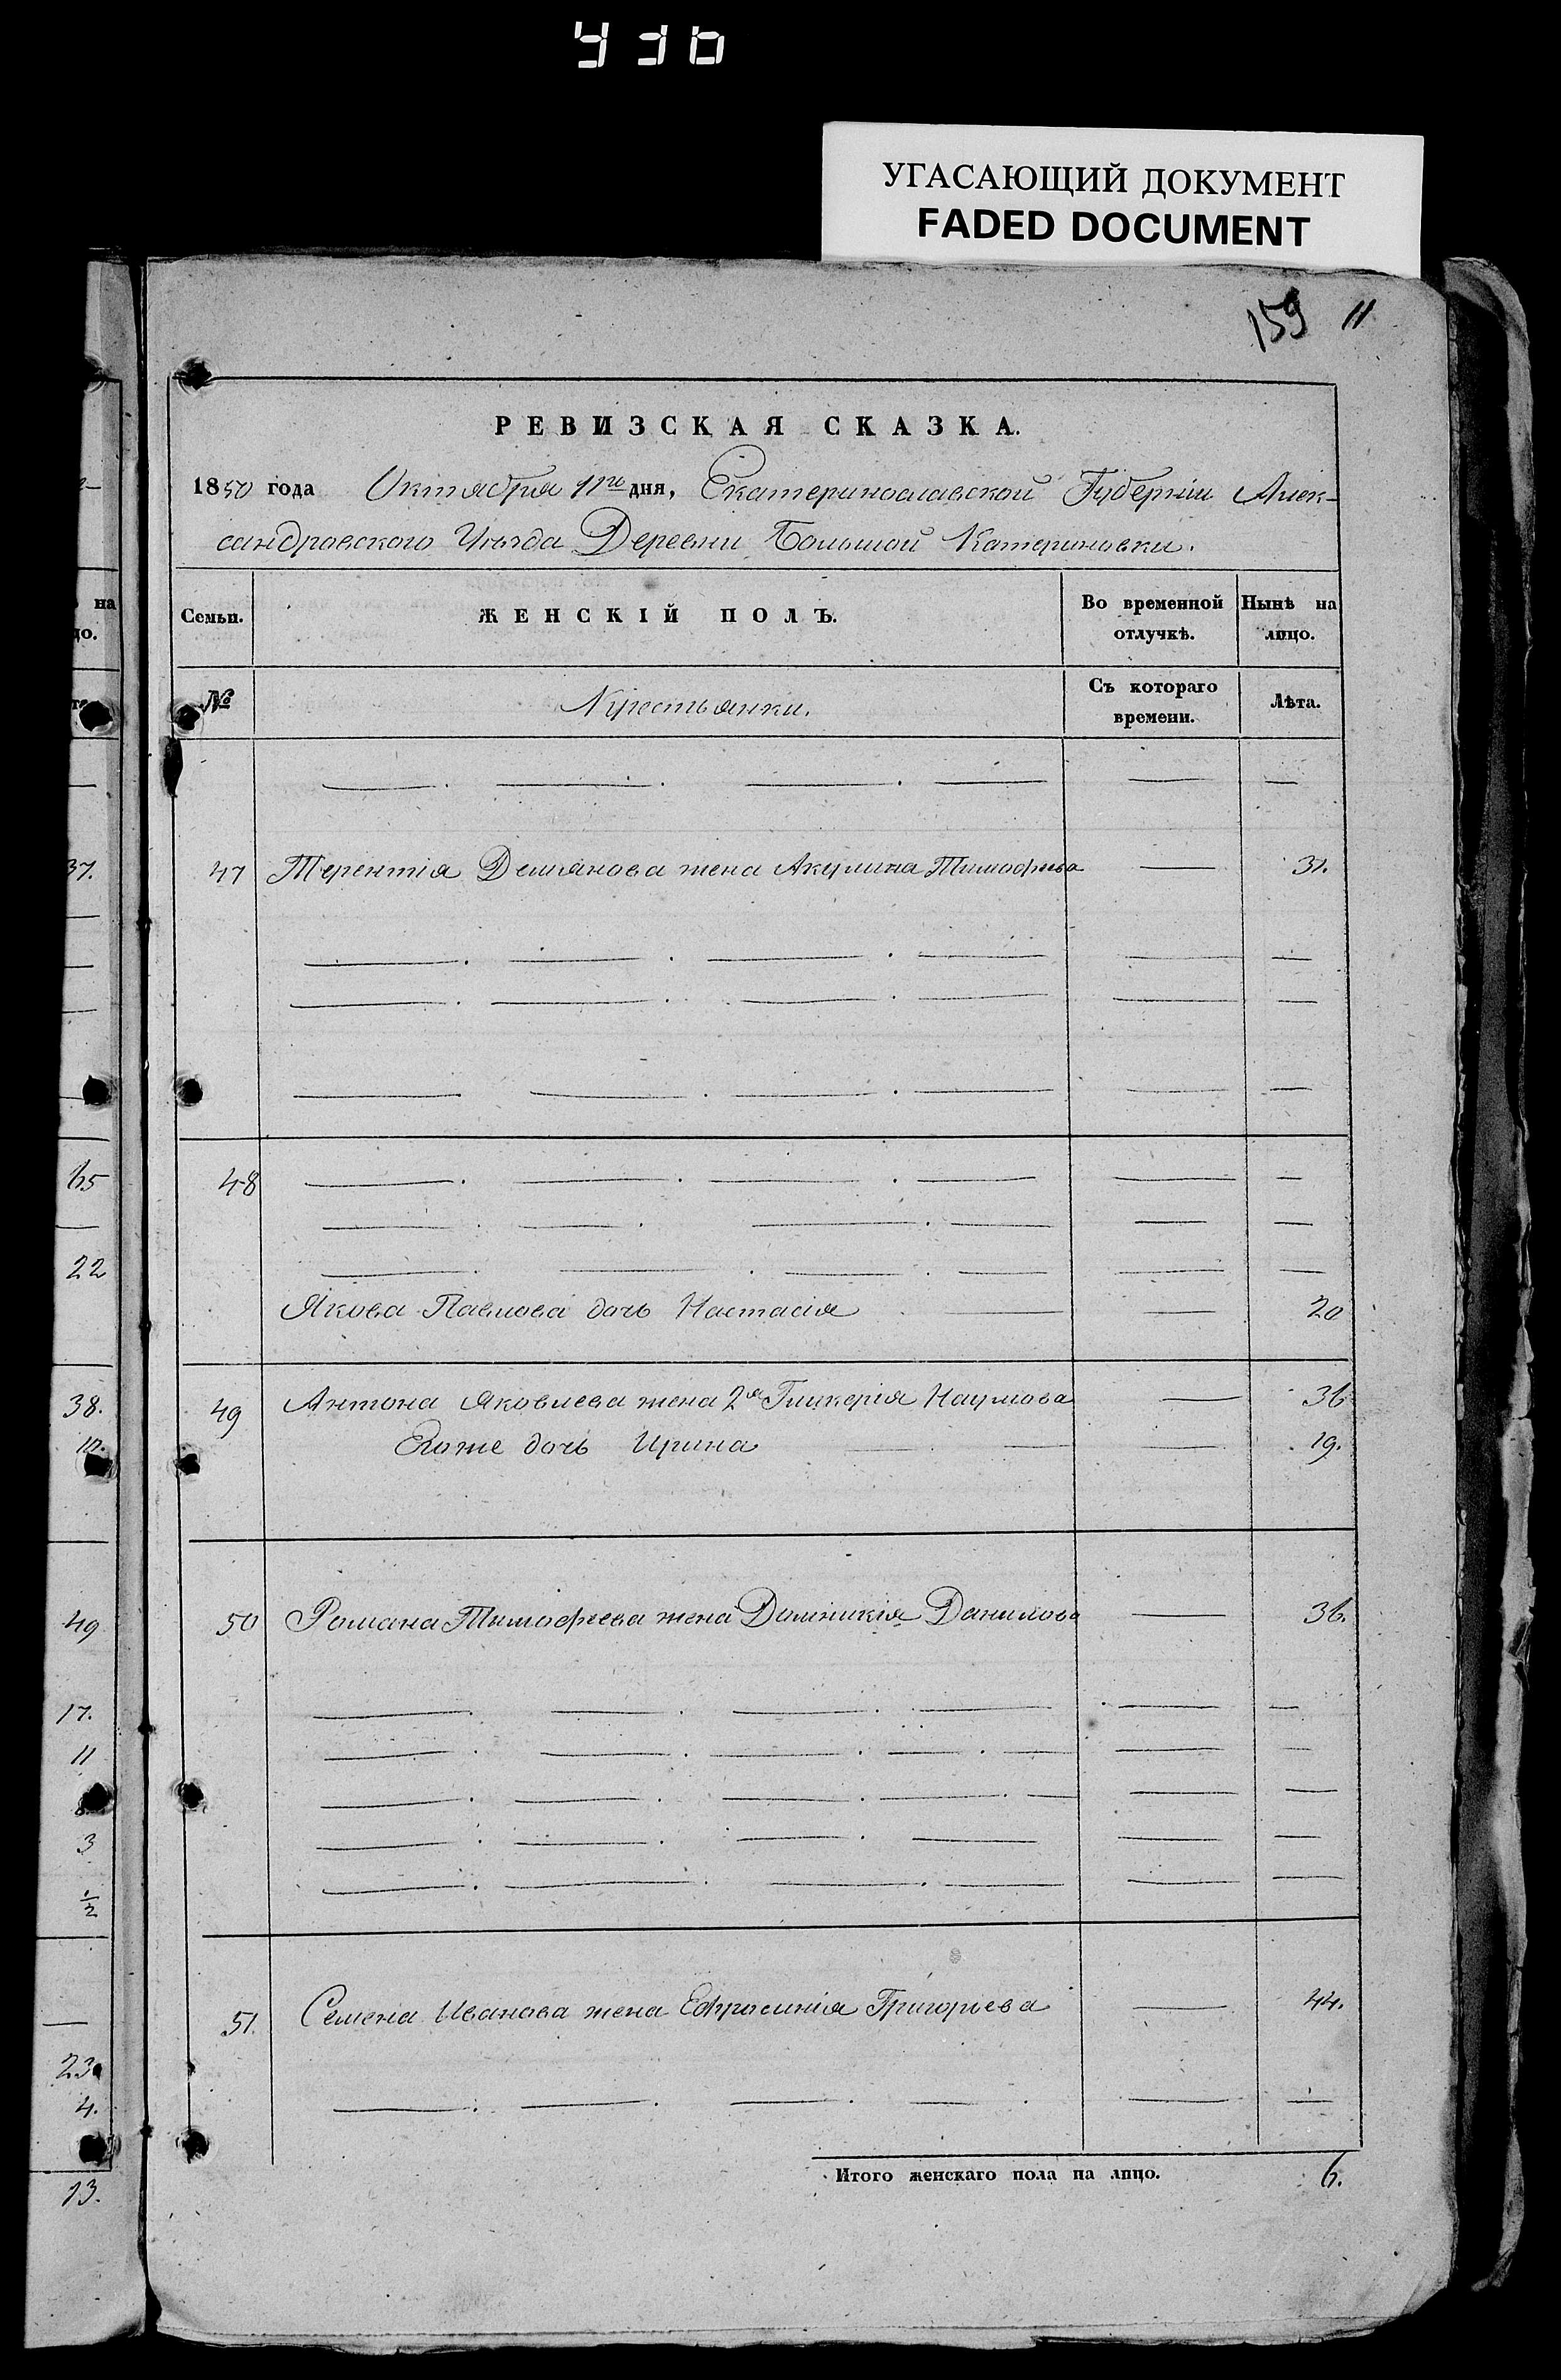 УГАСАЮЩИЙ ДОКУМЕНТ
FADED DOCUMENT
159 11
РЕВИЗСКАЯ СКАЗКА.
1850 года Октября 11го дня, Екатеринославской Губерніи Алек-
сандровского Уѣзда Деревни Большой Катериновки.
Семьи. ЖЕНСКІЙ ПОЛЪ. Во временной отлучкѣ. Нынѣ на лицо.
№ Крестьянки. Съ котораго времени. Лѣта.
47 Терентія Демьянова жена Акулина Тимофѣева — 31.
48
Якова Павлова дочь Настасія — 20
49 Антона Яковлева жена 2я Гликерія Наумова — 36
Егоже дочь Ирина — 19.
50 Романа Тимофѣева жена Домникія Данилова — 36.
51. Семена Иванова жена Ефросинія Григорьева — 44.
Итого женскаго пола на лицо. 6.
37.
65
22
38.
10.
49
17.
11
8
3
1/2
23
4.
13.